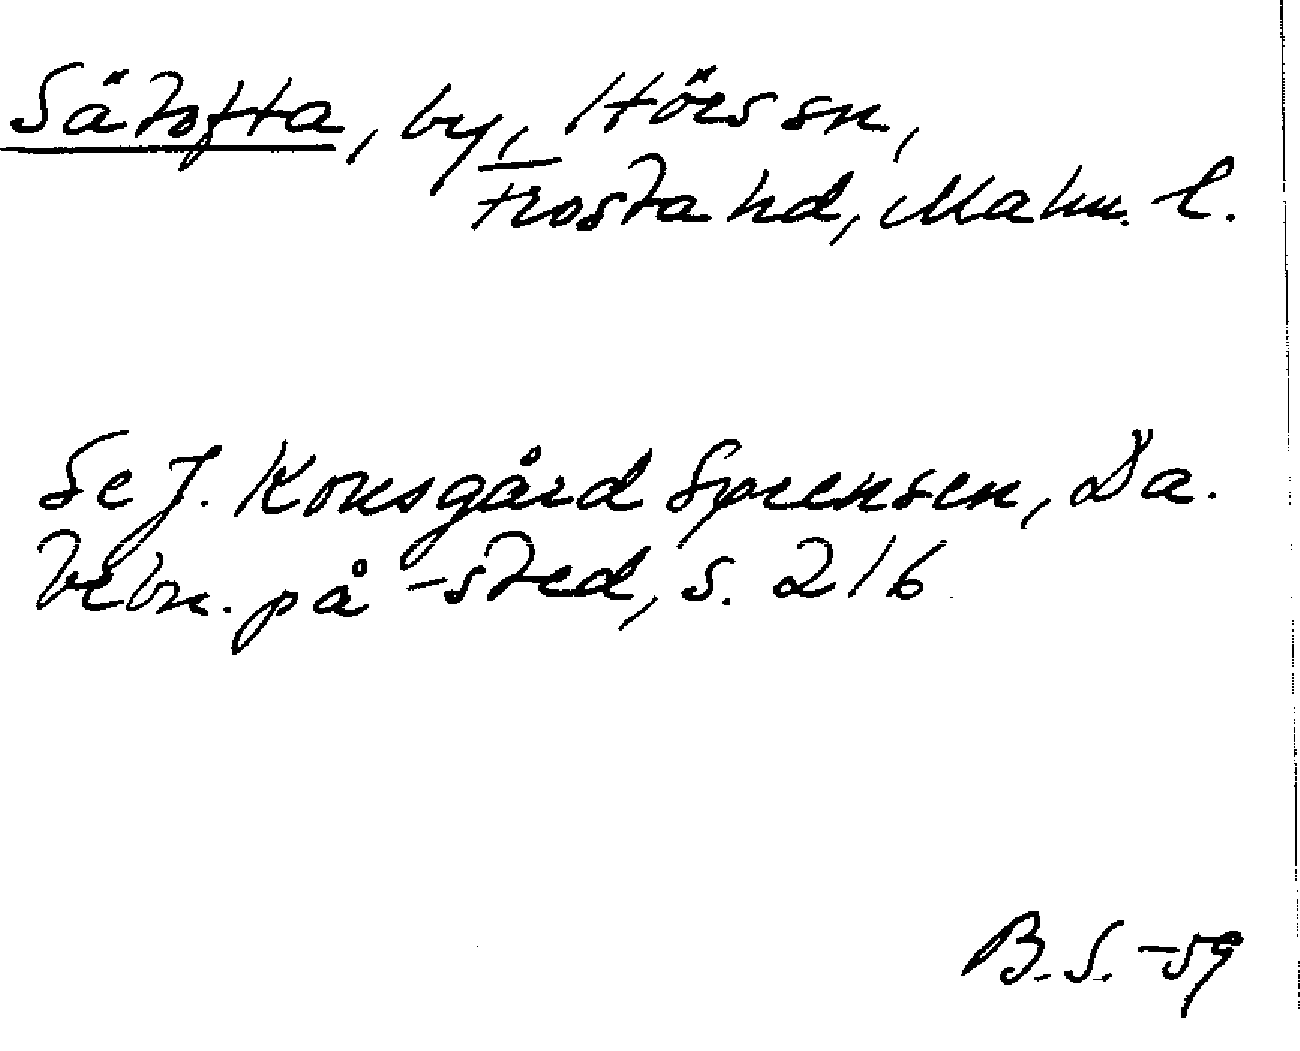 Sätofta, by, Hörs sn,
Frosta hd, Malm. l.
Se J. Konsgård Sørensen, Da.
bebn. på -sted, s. 216
B.S. -59